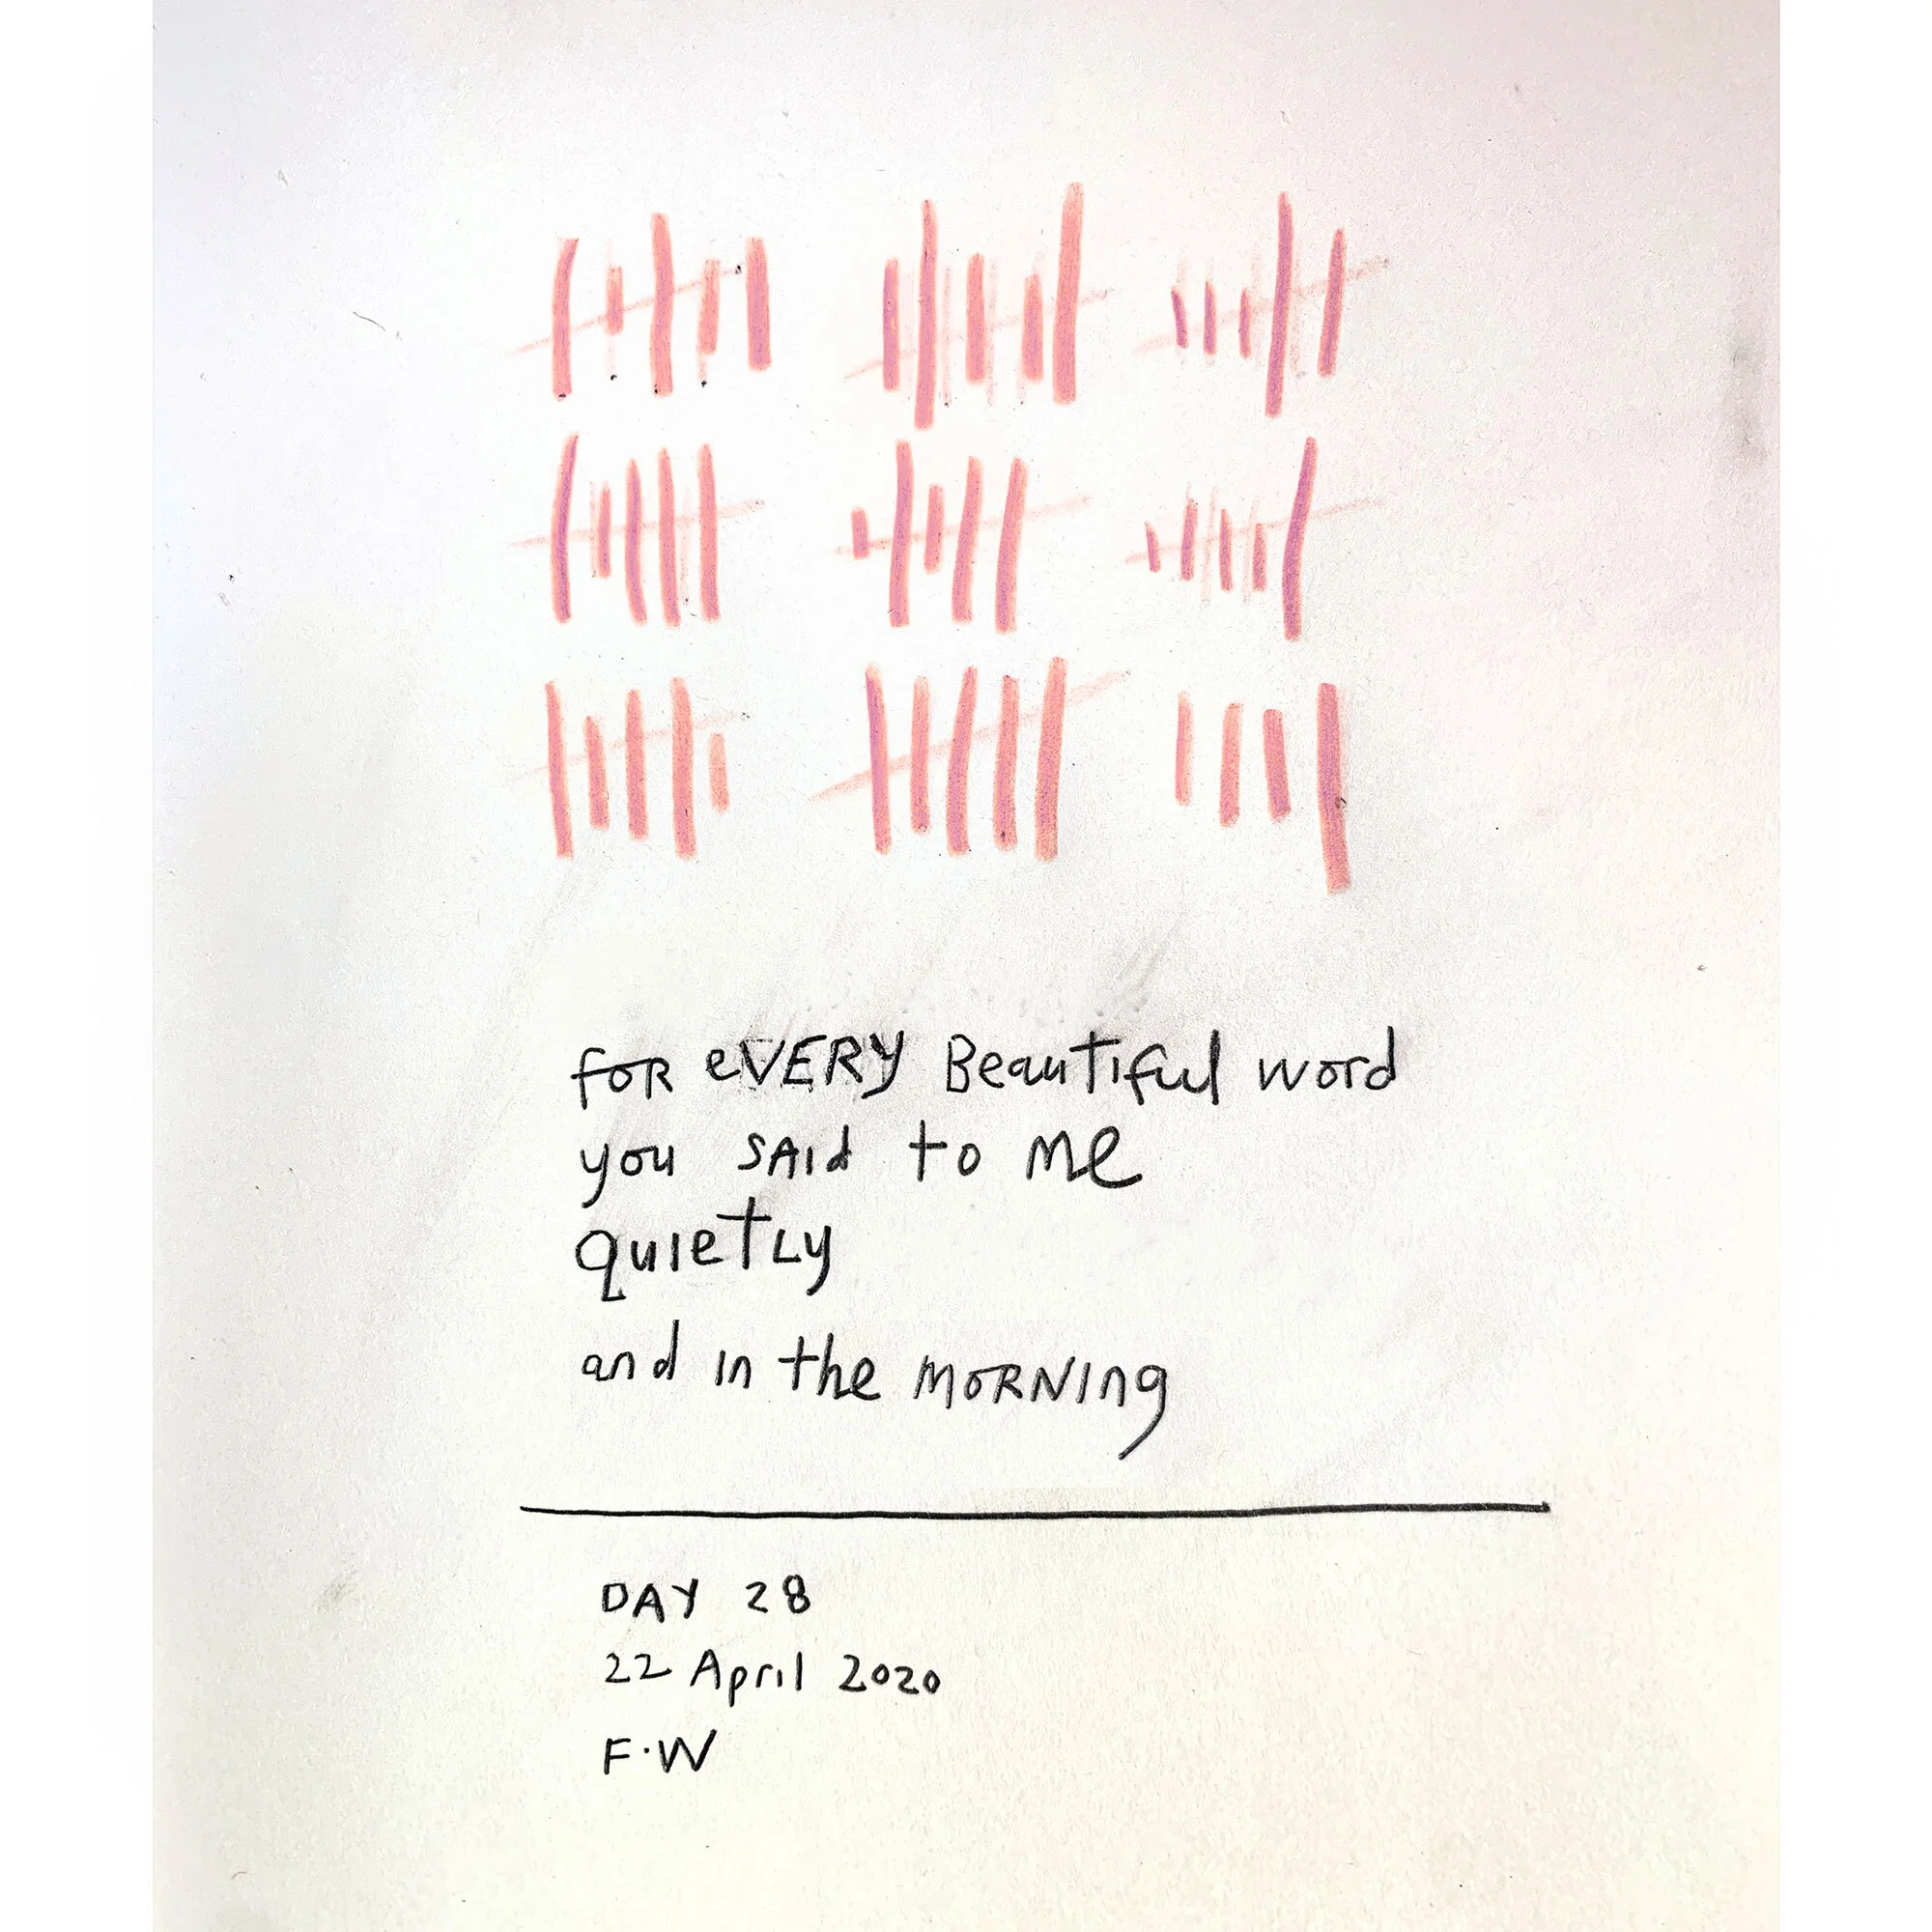 foR eVERY Beautiful word
you SAId to me
quietLy
and in the MoRNIng
DAY 28
22 April 2020
F·W